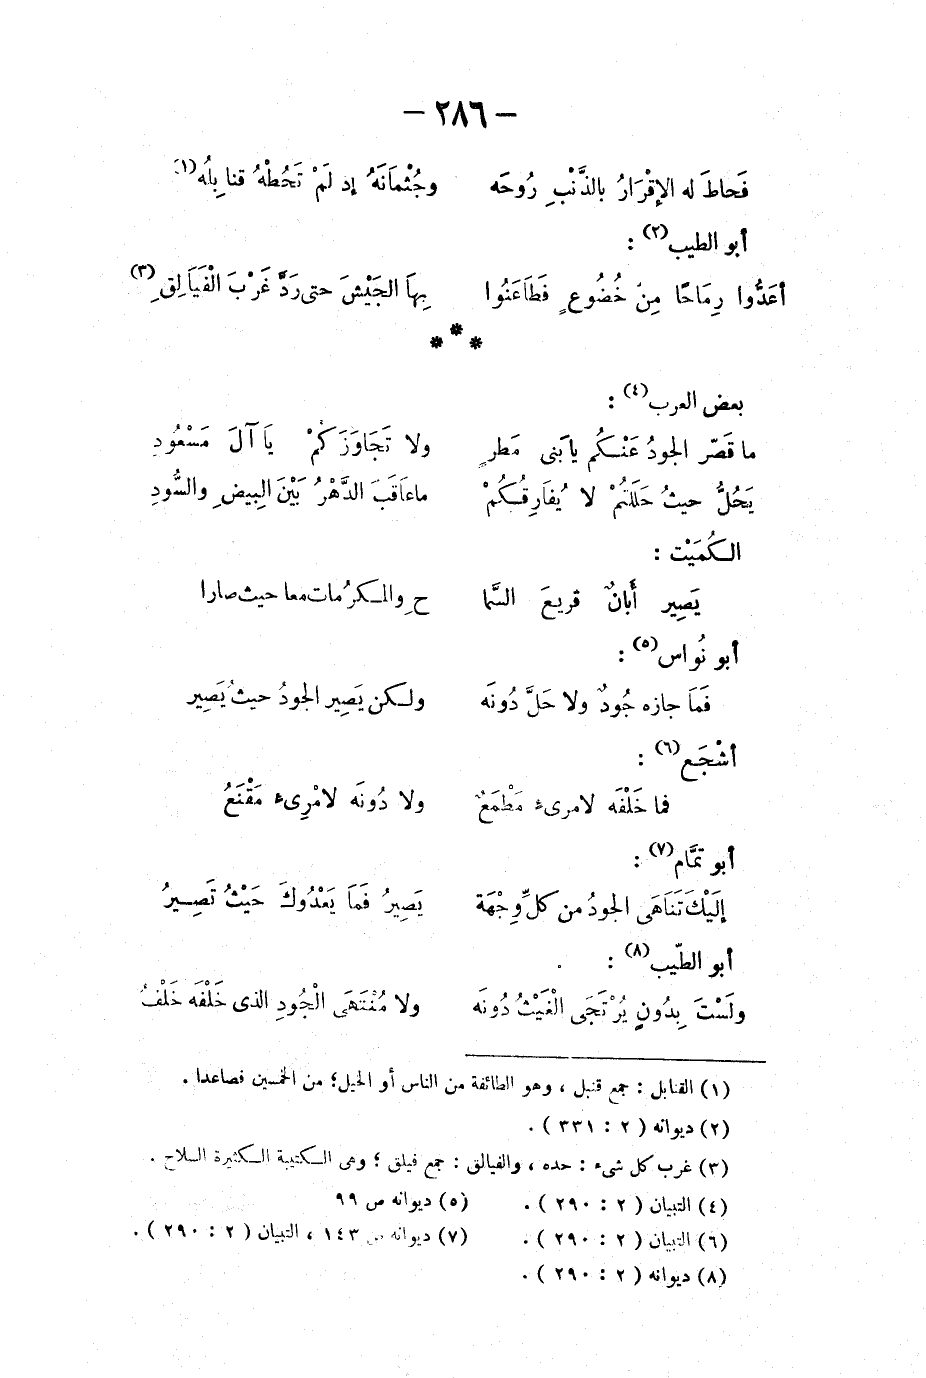 – ٢٨٦ –
فَحاطَ له الإقْرَارُ بالذَّنْبِ رُوحَه وجُثْمَانَهُ إد لَمْ تَحُطْهُ قنابِلُه (١)
أبو الطيب (٢) :
أعَدُّوا رِمَاحًا مِنْ خُضُوعٍ فَطَاعَنُوا بِهاَ الجَيْشَ حتى رَدَّ غَرْبَ الْفَيَالِقِ (٣)
* * *
بعض العرب (٤) :
ما قَصّر الجودُ عَنْكُم يا بَنى مَطرٍ ولا تَجَاوَزَكُمْ يَا آلَ مَسْعُودِ
يَحُلُّ حيثُ حَلَلْتُمْ لا يُفَارِقُكُمْ ماعاَقَبَ الدَّهْرُ بَيْنَ البِيضِ والسُّودِ
الكُمَيْت :
يَصِير أَبانٌ قريعَ السَّما حِ والمكرُمات معا حيث صارا
أبو نُواس (٥) :
فَمَا جازه جُودٌ ولا حَلَّ دُونَه ولكن يَصِير الجودُ حيثُ يَصِير
أشْجَع (٦) :
فما خَلْفَه لامرىء مَطْمَعٌ ولا دُونَه لامْرِىء مَقْنَعُ
أبو تمَّام (٧) :
إلَيْكَ تَنَاهَى الجودُ من كلِّ وِجْهَة يَصِيرُ فَمَا يَعْدُوكَ حَيْثُ تَصِيرُ
أبو الطّيب (٨) :
ولَسْتَ بِدُونٍ يُرْتَجَى الْغَيْثُ دُونَه ولا مُنْتَهَى الْجُودِ الذى خَلْفَه خَلْفُ
(١) القنابل : جمع قنبل ، وهو الطائفة من الناس أو الخيل؛ من الخمسين فصاعدا .
(٢) ديوانه ( ٢ : ٣٣١ ) .
(٣) غرب كل شىء : حده ، والفيالق : جمع فيلق ؛ وهى الكتيبة الكثيرة السلاح .
(٤) التبيان ( ٢ : ٢٩٠ ) . (٥) ديوانه ص ٩٩
(٦) التبيان ( ٢ : ٢٩٠ ) . (٧) ديوانه ص ١٤٣ ، التبيان ( ٢ : ٢٩٠ ) .
(٨) ديوانه ( ٢ : ٢٩٠ ) .